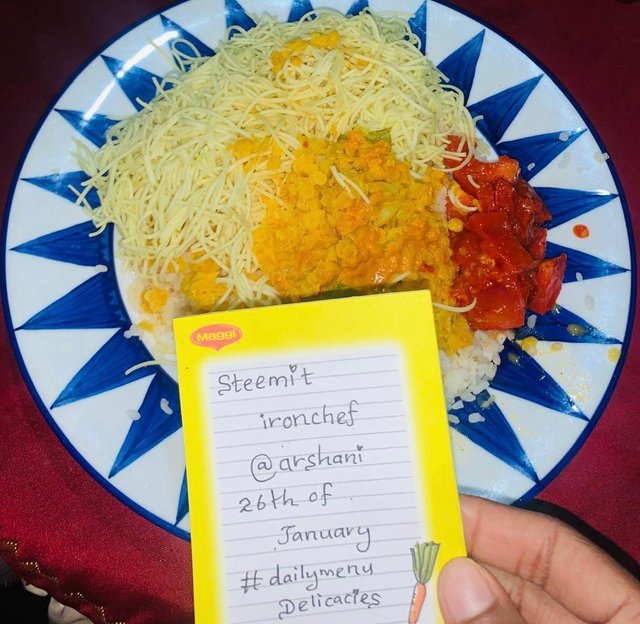 Maggi
Steemit
ironchef
@arshani
26th of
January
#dailymenu
Delicacies